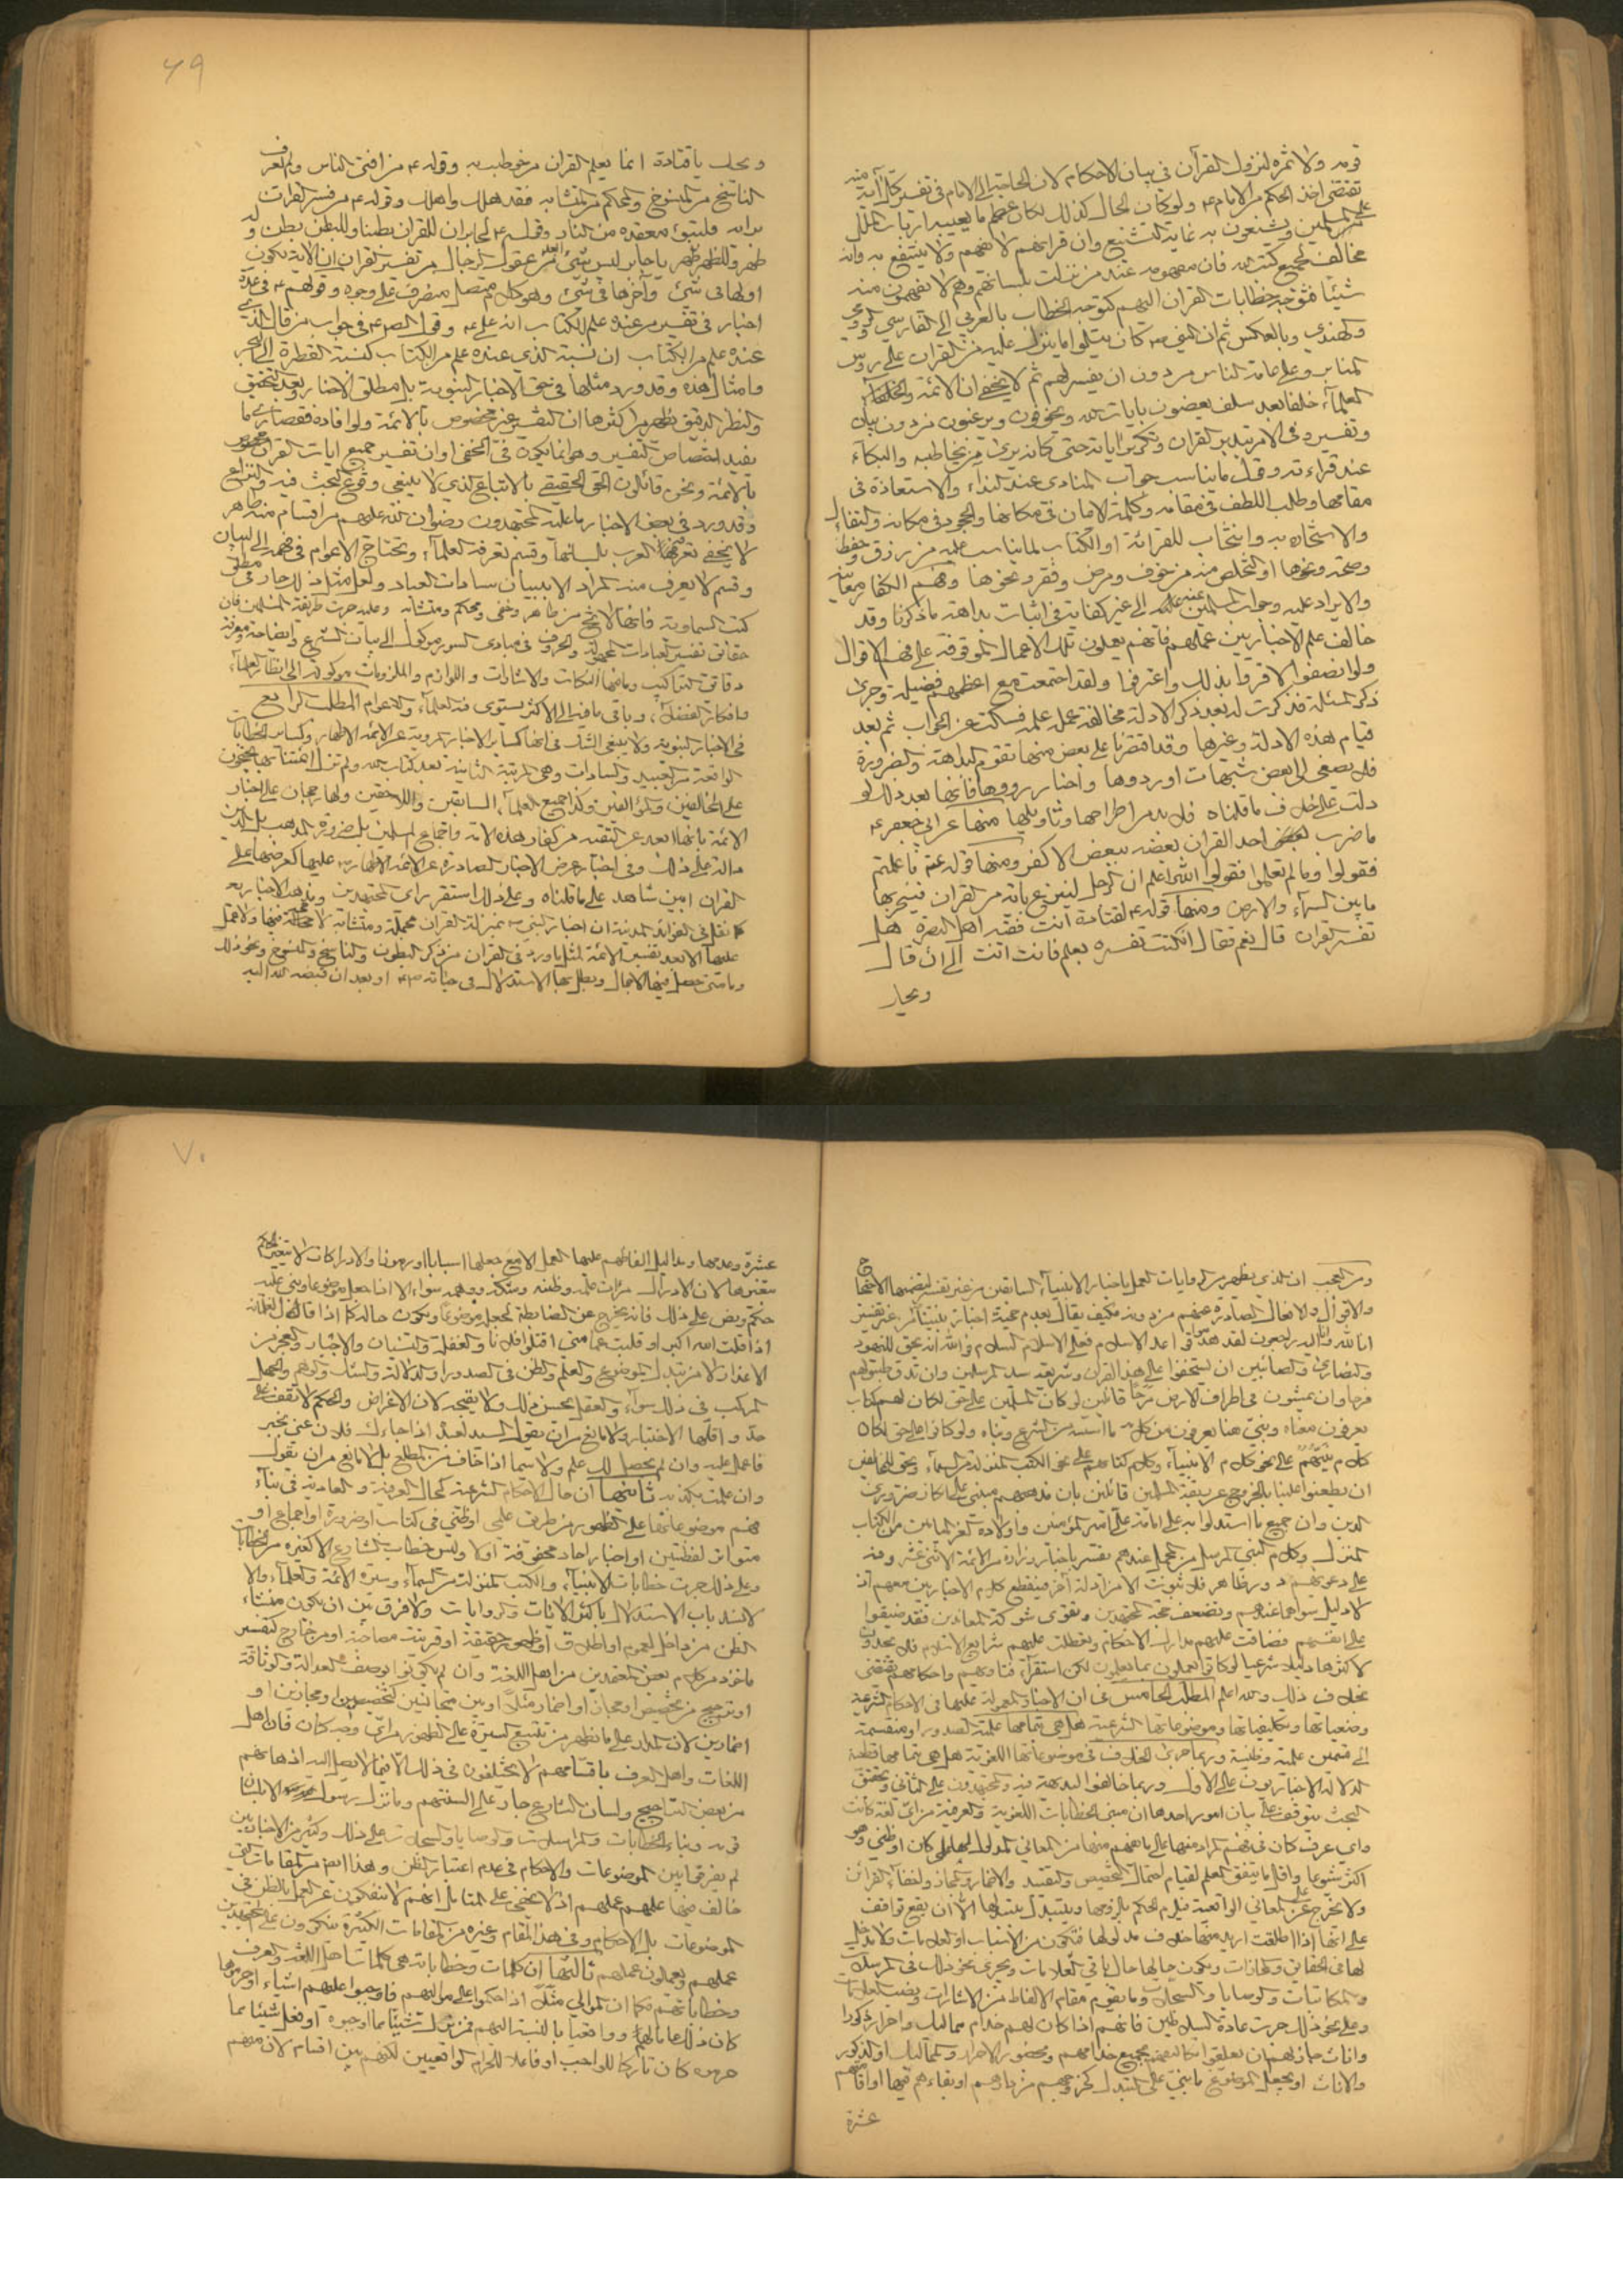 قومه ولا ثمرة لنزول القرآن في بيان الاحكام لان الحاجة الى الامام في تفسير كل آية منه
تقتضي اخذ الحكم من الامام ع ولو كان الحال كذلك لكان اعظم ما يعيب به ارباب الملل
على المسلمين ويشنعون به غاية التشنيع وان قرآنهم لا يفهم ولا ينتفع به وانه
مخالف لجميع كتب الله فان مفهومه عند من نزلت بلسانهم وهم لا يفهمون منه
شيئا فتوجيه خطابات القران اليهم كتوجيه الخطاب بالعربي الى الفارسي والرومي
والهندي وبالعكس ثم ان النبي ص كان يتلوا ما ينزل عليه من القران على رؤس
المنابر وعلى عامة الناس من دون ان يفسر لهم ثم لا يخفى ان الائمة والخلفاء
العلماء خلفا بعد سلف يعضون بايات الله ويخوفون ويرغبون من دون بيان
وتفسير وفي الامر بتدبر القران وتكرير اياته حتى كانه يرى من يخاطبه والبكاء
عند قراءته وقول ما يناسب جواب المنادى عند النداء والاستعاذة في
مقامها وطلب اللطف في مقامه وكلمة الامان في مكانها والسجود في مكانه والتفال
والاستخارة به وانتخاب للقرائة او الكتاب لما يناسب عليه من رزق وحفظ
وصحة ونحوها او التخلص منه من خوف ومرض وفقر ونحوها وفهم الكفار معانيه
والايراد عليه وجواب المسلمين عنه الى غير كفاية في اثبات بداهة ما ذكرنا وقد
خالف علم الاخباريين عملهم فانهم يعملون تلك الاعمال المتوقفة على فهم الاقوال
ولو انصفوا لاقروا بذلك واعترفوا ولقد اجتمعت مع اعظمهم فضيلة وجرى
ذكر المسئلة فذكرت له بعد ذكر الادلة مخالفة عمله علمه فسكت عن الجواب ثم بعد
قيام هذه الادلة وغيرها وقد اقتصرنا على بعض منها تقوم البداهة والضرورة
فلا يصغى الى بعض شبهات اوردوها واخبار رووها فانها بعد ذلك لو
دلت على خلاف ما قلناه فلا بد من اطراحها وتاويلها منها عن ابي جعفر ع
ما ضرب احد القران بعضه ببعض الا كفر ومنها قوله ع ما علمتم
فقولوا وما لم تعلموا فقولوا الله اعلم ان الرجل لينتزع باية من القران فيخر بها
ما بين السماء والارض ومنها قوله ع لقتادة انت فقيه اهل البصرة هل
تفسر القران قال نعم فقال ان كنت تفسره بعلم فانت انت الى ان قال
ويحك
٦٩
ويحك يا قتادة انما يعلم القران من خوطب به وقوله ع من افتى الناس ولم يعرف
الناسخ من المنسوخ والمحكم من المتشابه فقد هلك واهلك وقوله ع من فسر القران
برايه فليتبوء مقعده من النار وقوله ع لجابر ان للقران بطنا وللبطن بطن وله
ظهر وللظهر ظهر يا جابر ليس شيئ ابعد من عقول الرجال من تفسير القران ان الاية يكون
اولها في شيئ وآخرها في شيئ وهو كلام متصل منصرف على وجوه وقولهم ع في عدة
اخبار في تفسير من عنده علم الكتاب انه علي ع وقول الصادق ع في جواب من قال الذي
عنده علم من الكتاب ان نسبة الذي عنده علم من الكتاب كنسبة القطرة الى البحر
وامثال هذه وقد ورد مثلها في حق الاخبار النبوية بل مطلق الاخبار وبعد التحقيق
والنظر الدقيق يظهر من اكثرها ان التفسير غير مخصوص بالائمة ولو افاده فقصارى ما
يفيد اختصاص التفسير وهو انما يكون في الخفي او ان تفسير جميع ايات القران مخصوص
بالائمة ونحن قائلون الحق الحقيقي بالاتباع الذي لا ينبغي وقوع البحث فيه والنزاع
وقد ورد في بعض الاخبار ما عليه المجتهدون رضوان الله عليهم من اقسام منه ظاهر
لا يخفى تعرفه العرب بلسانها وقسم تعرفه العلماء وتحتاج الاعوام في فهمه الى البيان
وقسم لا يعرف منه المراد الا ببيان سادات العباد ولعل مثل ذلك جار في مطلق
كتب السماوية فانها لا تخ من ظاهر وخفي ومحكم ومتشابه وعليه جرت طريقة المسلمين فان
حقائق تفسير العبادات المجهولة والحروف في مبادى السور موكول الى بيان الشرع وايضاحه ومعرفة
دقائق التراكيب وما فيها النكات والاشارات واللوازم والملزومات موكولة الى انظار العلماء
وافكار الفضلاء وباقي ما فيه الى الاكثر يستوى فيه العلماء والاعوام المطلب الرابع
في الاخبار النبوية ولا ينبغي الشك في انها كسائر الاخبار المروية عن الائمة الاطهار وكسائر الخطابات
الواقعة من العبيد والسادات وهي المرتبة الثانية بعد كتاب الله ولم تزل ائمتنا بها يحتجون
على المخالفين والمؤالفين وكذا جميع العلماء السابقين واللاحقين ولها رجحان على اخبار
الائمة بانها ابعد عن التقية من كفار هذه الامة واجماع المسلمين بل ضرورة المذهب بل الدين
دالة على ذلك وفي اخبار عرض الاخبار الصادرة عن الائمة الاطهار ع عليها كعرضها على
القران ابين شاهد على ما قلناه وعلى ذلك استقر راى المجتهدين ومذهب الاخبارية
كما نقل في الفوائد المدنية ان اخبار النبي ص بمنزلة القران مجملة ومتشابه لا حجة فيها ولا عمل
عليها الا بعد تفسير الائمة لمثل ما ورد في القران من ذكر البطون والناسخ والمنسوخ ونحو ذلك
وما متى حصل فيها الاجمال وبطل بها الاستدلال في حياته ص او بعد ان قبضه الله اليه
ومن العجب ان الذي يظهر من الروايات العمل باخبار الانبياء السابقين من غير تفسير لتضمنها الاحتجاج
والاقوال والافعال الصادرة عنهم من دونه فكيف يقال بعدم حجية اخبار نبينا من غير تفسير
انا لله وانا اليه راجعون لقد هدموا قواعد الاسلام فعلى الاسلام السلام فوالله انه يحق لليهود
والنصارى والصابئين ان يستخفوا على هذا القران وشريعة سيد المرسلين وان تدق طبولهم
فرحا وان يمشون في اطراف الارض مرحا قائلين لو كان المسلمين على حق لكان لهم كتاب
يعرفون معناه ونبي هنا يعرفون من كلامه ما اسسه من الشرع وبناه ولو كانوا على حق لكان
كلام نبيهم على نحو كلام الانبياء وكلام كتابهم على نحو الكتب المنزلة من السماء ويحق للمخالفين
ان يطعنوا علينا بالخروج عن ربقة المسلمين قائلين بان مذهبهم مبني على انكار ضروري
الدين وان جميع ما استدلوا به على امامة علي امير المؤمنين واولاده الغر الميامين من الكتاب
المنزل وكلام النبي المرسل من المجمل عندهم يفسر باخبار زرارة من الائمة الاثني عشر وفيه
على دعويهم دور ظاهر فلا ثبوت الا من ادلة اخر فينقطع كلام الاخباريين معهم اذ
لا دليل سواهما عندهم وتضعف حجة المجتهدين وتقوى شوكة المعاندين فقد ضيقوا
على انفسهم فضاقت عليهم مدارك الاحكام وتعطلت عليهم شرائع الاسلام فلا يجدون
لاكثرها دليلا شرعيا لو كانوا يعملون بما يعلمون لكن استقرار فتاويهم واحكامهم يقتضي
خلاف ذلك والله اعلم المطلب الخامس في ان الاخبار المعولة عليها في الاحكام الشرعية
وضعياتها وتكليفياتها وموضوعاتها الشرعية هل هي بتمامها علمية الصدور او منقسمة
الى قسمين علمية وظنية وربما جرى الخلاف في موضوعاتها اللغوية هل هي بتمامها قطعية
الدلالة الاخباريون على الاول وربما خالفوا البديهة فيه والمجتهدون على الثاني وتحقيق
البحث يتوقف على بيان امور احدها ان مبنى الخطابات اللغوية والعرفية من اي لغة كانت
واي عرف كان في فهم المراد منها على ما يفهم منها من المعاني المدلول عليها علمي كان او ظني وهو
اكثر شيوعا واقل ما يتفق العلم لقيام احتمال التخصيص والتقييد والاضمار والمجاز ولخفاء القرائن
ولا يخرج عن المعاني الواقعية فيلزم الحكم بلزومها ويتبدل بتبدلها الا ان يقع توافق
على انها اذا اطلقت اريد منها خلاف مدلولها فتكون من الاسباب او العلامات ولا مدخل
لها في الحقائق والمجازات ويكون حالها حال باقي العلامات ويجري نحو ذلك في المراسلات
والمكاتبات والوصايا والسجلات وما يقوم مقام الالفاظ من الاشارات ونصب العلامات
وعلى نحو ذلك جرت عادة السلاطين فانهم اذا كان لهم خدام مماليك واحرار ذكورا
واناثا جاز لهم ان يعلقوا تكاليفهم بجميع خدامهم وبخصوص الاحرار والمماليك او الذكور
والاناث او بجعل الموضوع ما يبنى على التبدل كخروجهم من ديارهم او بقاءهم فيها او اقامتهم
عشرة
٧٠
عشرة وعدمها وبدا ليل القائهم عليها العمل الا مع جعلها اسبابا او رموزا والادراكات لا يتغير الحكم
بتغيرها لان الادراك مراة علمه وظنه وشكه ووهمه سواء الا اذا جعل موضوعا وبني عليه
حكم ونص على ذلك فانه يخرج عن الضابطة لجعل موضوعا ويكون حاله كما اذا قال قائل لغلمانه
اذا قلت الله اكبر او قلبت عمامتي اقتلوا فلانا والغفلة والنسيان والاجبار والعجز من
الاعذار لا من تبدل الموضوع والعلم والظن في الصدور او الدلالة والشك والوهم والجهل
المركب في ذلك سواء والعقل يحسن ذلك ولا يقبحه لان الاغراض والحكم لا تقف على
حد واقلها الاختبار ولا مانع من ان يقول السيد لعبده اذا جاءك فلان عني بخبر
فاعمل عليه وان لم يحصل لك علم ولا سيما اذا خاف من المطلع بل لا مانع من ان يقول
وان علمت بكذبه ثانيها ان حال الاحكام الشرعية كحال العرفية والعادية في بناء
فهم موضوعاتها على الظهور من طريق علمي او ظني في كتاب او ضرورة او اجماع او
متواتر لفظيين او اخبار احاد محفوفة او لا وليس خطاب الشارع الا كغيره من الخطابات
وعلى ذلك جرت خطابات الانبياء والكتب المنزلة من السماء وسيرة الائمة والعلماء والا
لانسد باب الاستدلال باكثر الايات والروايات ولا فرق بين ان يكون منشاء
الظن من داخل لعموم او اطلاق او ظهور حقيقة او قرينة مصاحبة او من خارج كتفسير
ماخوذ من كلام بعض المعتمدين من اهل اللغة وان لم يكونوا بوصف العدالة والوثاقة
او ترجيح من تخصيص او مجاز او اضمار مثلا او بين متجانسين كتخصيصين او مجازين او
اضمارين لان المدار على ما يظهر من تتبع السيرة على الظهور من اي وجه كان فان اهل
اللغات واهل العرف باقسامهم لا يختلفون في ذلك الا فيما لا يصل اليه اذهانهم
من بعض التراجيح ولسان الشارع جار على السنتهم وما نزل رسول الا بلسان
قومه وبناء الخطابات والمراسلات والوصايا والسجلات على ذلك وكثير من الاخباريين
لم يفرق بين الموضوعات والاحكام في عدم اعتبار الظن وهذا ايضا من المقامات التي
خالف فيها علمهم عملهم اذ لا يخفى على المتامل انهم لا ينفكون عن العمل بالظن في
الموضوعات بل الاحكام وفي هذا المقام وغيره من المقامات الكثيرة ينكرون على المجتهدين
عملهم ويعملون عملهم ثالثها ان كلمات وخطاباته هي كلمات اهل اللغة والعرف
وخطاباتهم فكما ان الموالي مثلا اذا حكموا على مواليهم فاوجبوا عليهم اشياء او حرموها
كان ذلك عاما لهم وواقعيا بالنسبة اليهم فمن ترك شيئا مما اوجبوه او فعل شيئا مما
حرموه كان تاركا للواجب او فاعلا للحرام الواقعيين لكنهم بين اقسام لان منهم